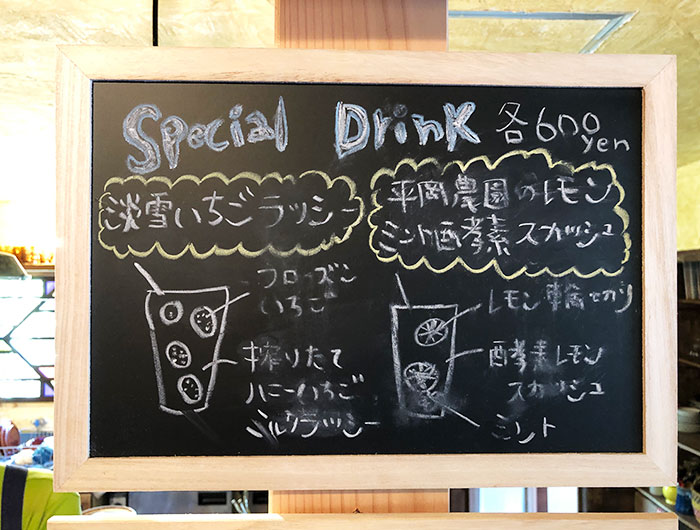 Special Drink 各600yen
淡雪いちごラッシー
平岡農園のレモン
ミント酵素スカッシュ
フローズン
いちご
搾りたて
ハニーいちご
ミルクラッシー
レモン輪切り
酵素レモン
スカッシュ
ミント